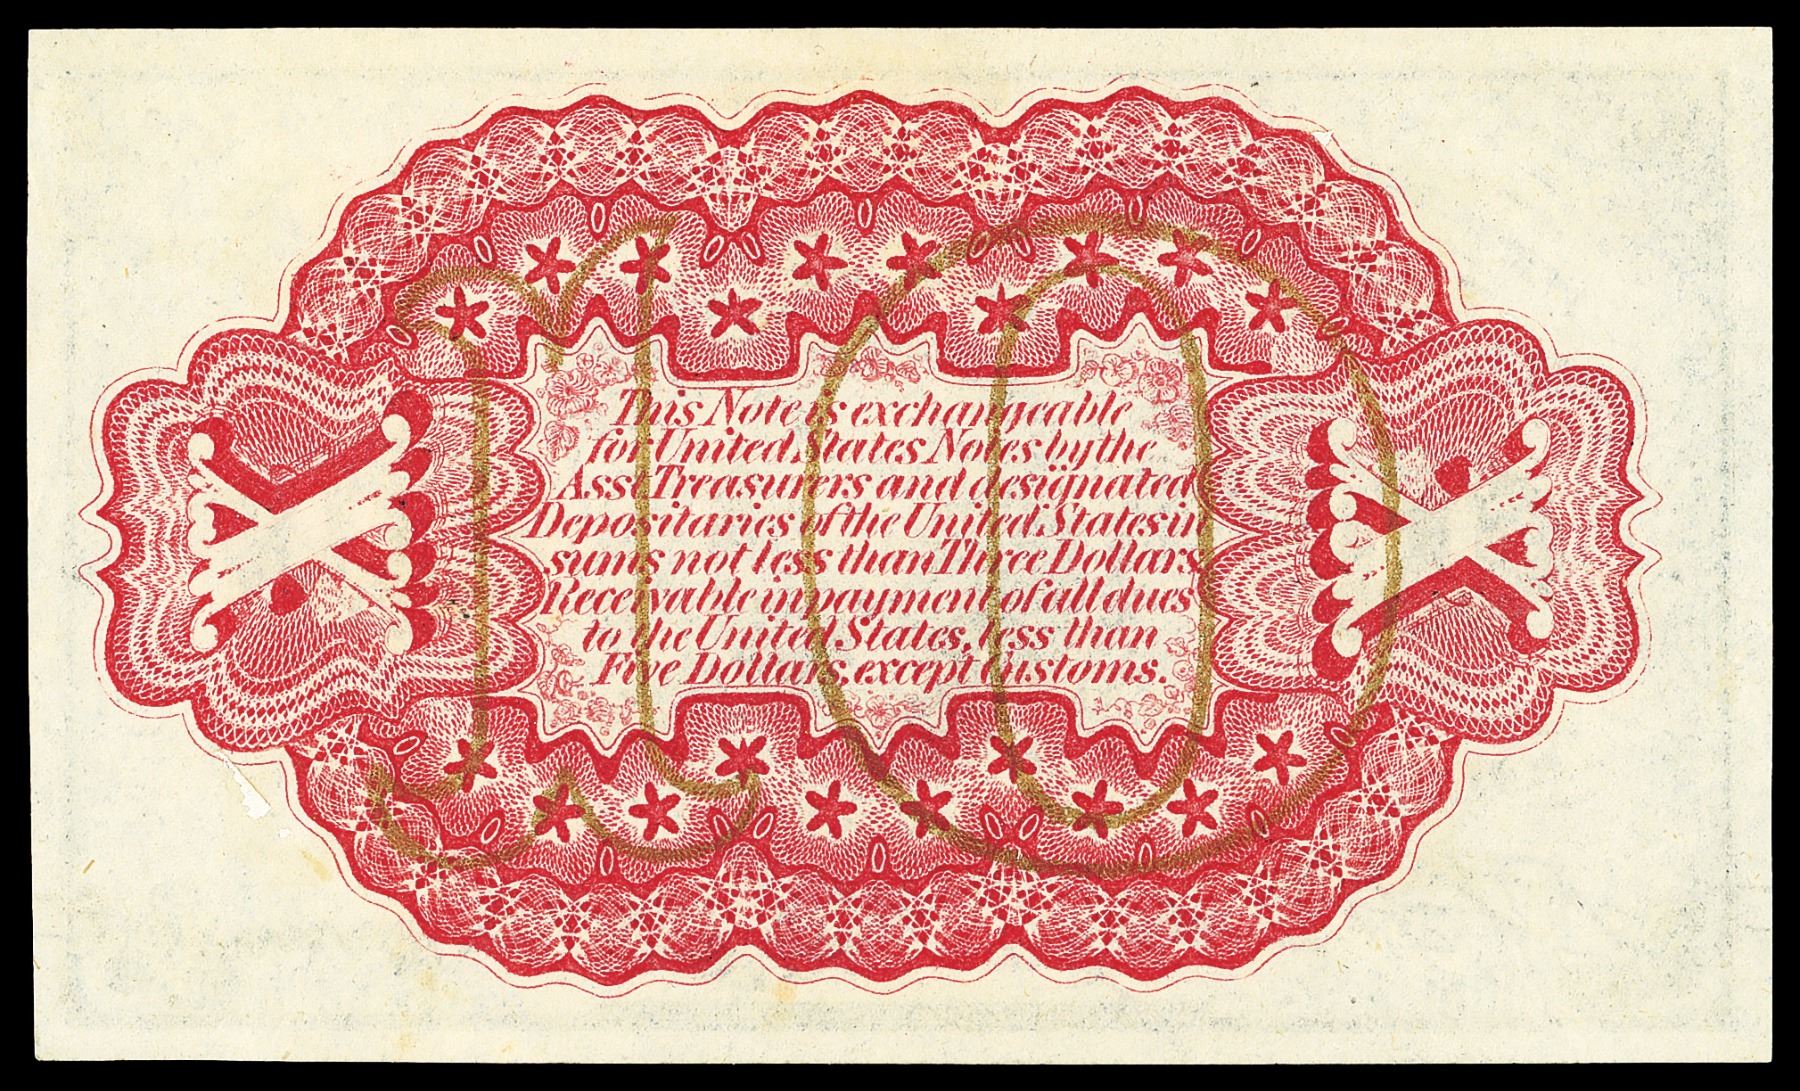 This Note is exchangeable
for United States Notes by the
Asst Treasurers and designated
Depositaries of the United States in
sums not less than Three Dollars.
Receivable in payment of all dues
to the United States, less than
Five Dollars, except Customs.
10
X
X